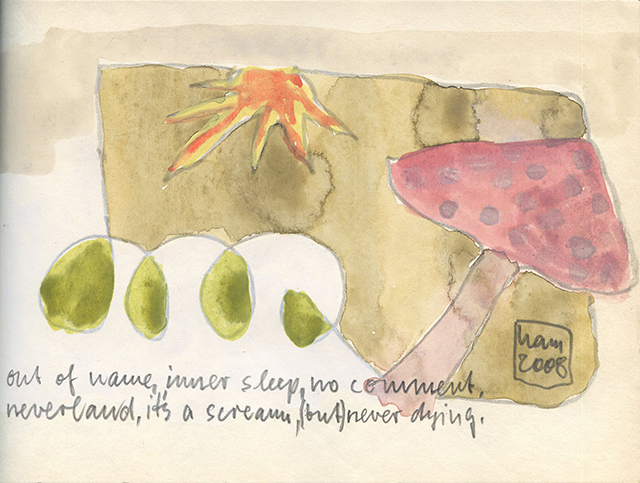 ham
2008
out of name, inner sleep, no comment,
neverland, it's a scream, (but) never dying.